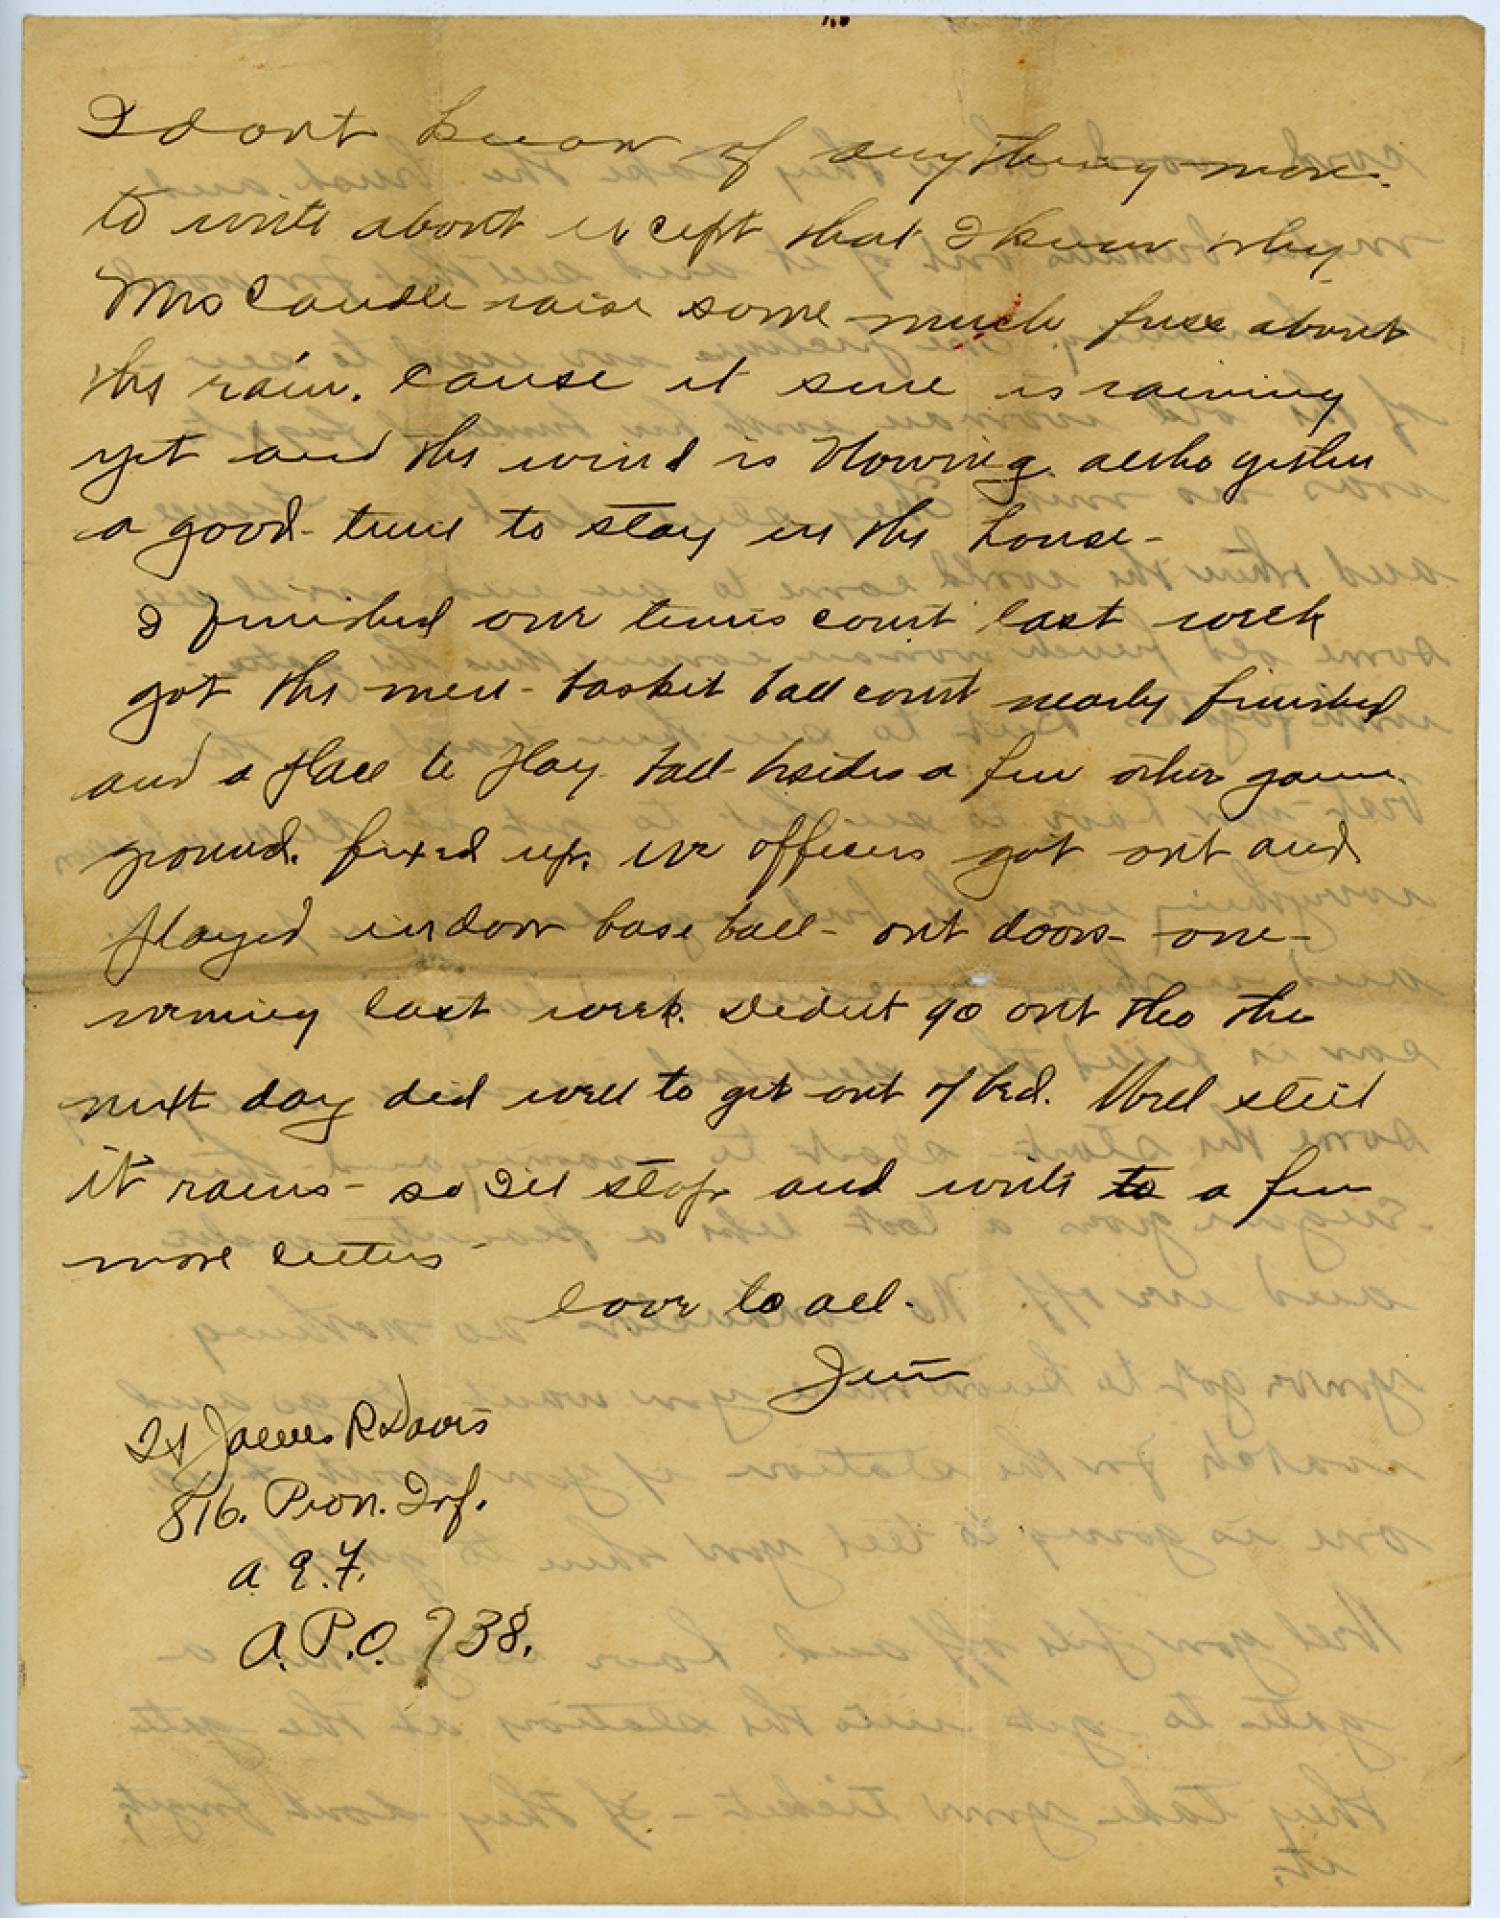 I dont know of anything more
to write about except that I know why
Mrs Caudle raise some much fuss about
the rain. cause it sure is raining
yet and the wind is blowing altho gether
a good time to stay in the house -
I finished our tennis court last week
got the men - basket ball court nearly finished
and a place to play ball - besides a few other game
ground. fixed up. we officers got out and
played indoor base ball - out doors - one -
evening last week. Didnt go out tho the
next day did well to get out of bed. Well still
it rains - so Ill stop and write to a few
more letters -
love to all.
Jim
Lt James R Davis
816. Pion. Inf.
A.E.F.
A.P.O. 738.